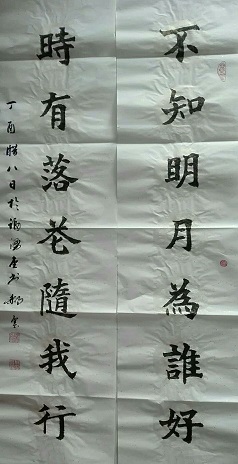 不知明月為誰好
時有落花隨我行
丁酉腊八日於